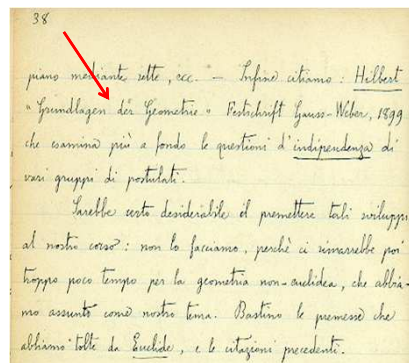 38
piano mediante rette, ecc. — Infine citiamo: Hilbert
"Grundlagen der Geometrie" Festschrift Gauss-Weber, 1899
che esamina più a fondo le questioni d'indipendenza di
vari gruppi di postulati.
Sarebbe certo desiderabile il premettere tali sviluppi
al nostro corso: non lo facciamo, perchè ci rimarrebbe poi
troppo poco tempo per la geometria non-euclidea, che abbia-
mo assunto come nostro tema. Bastino le premesse che
abbiamo tolte da Euclide, e le citazioni precedenti.